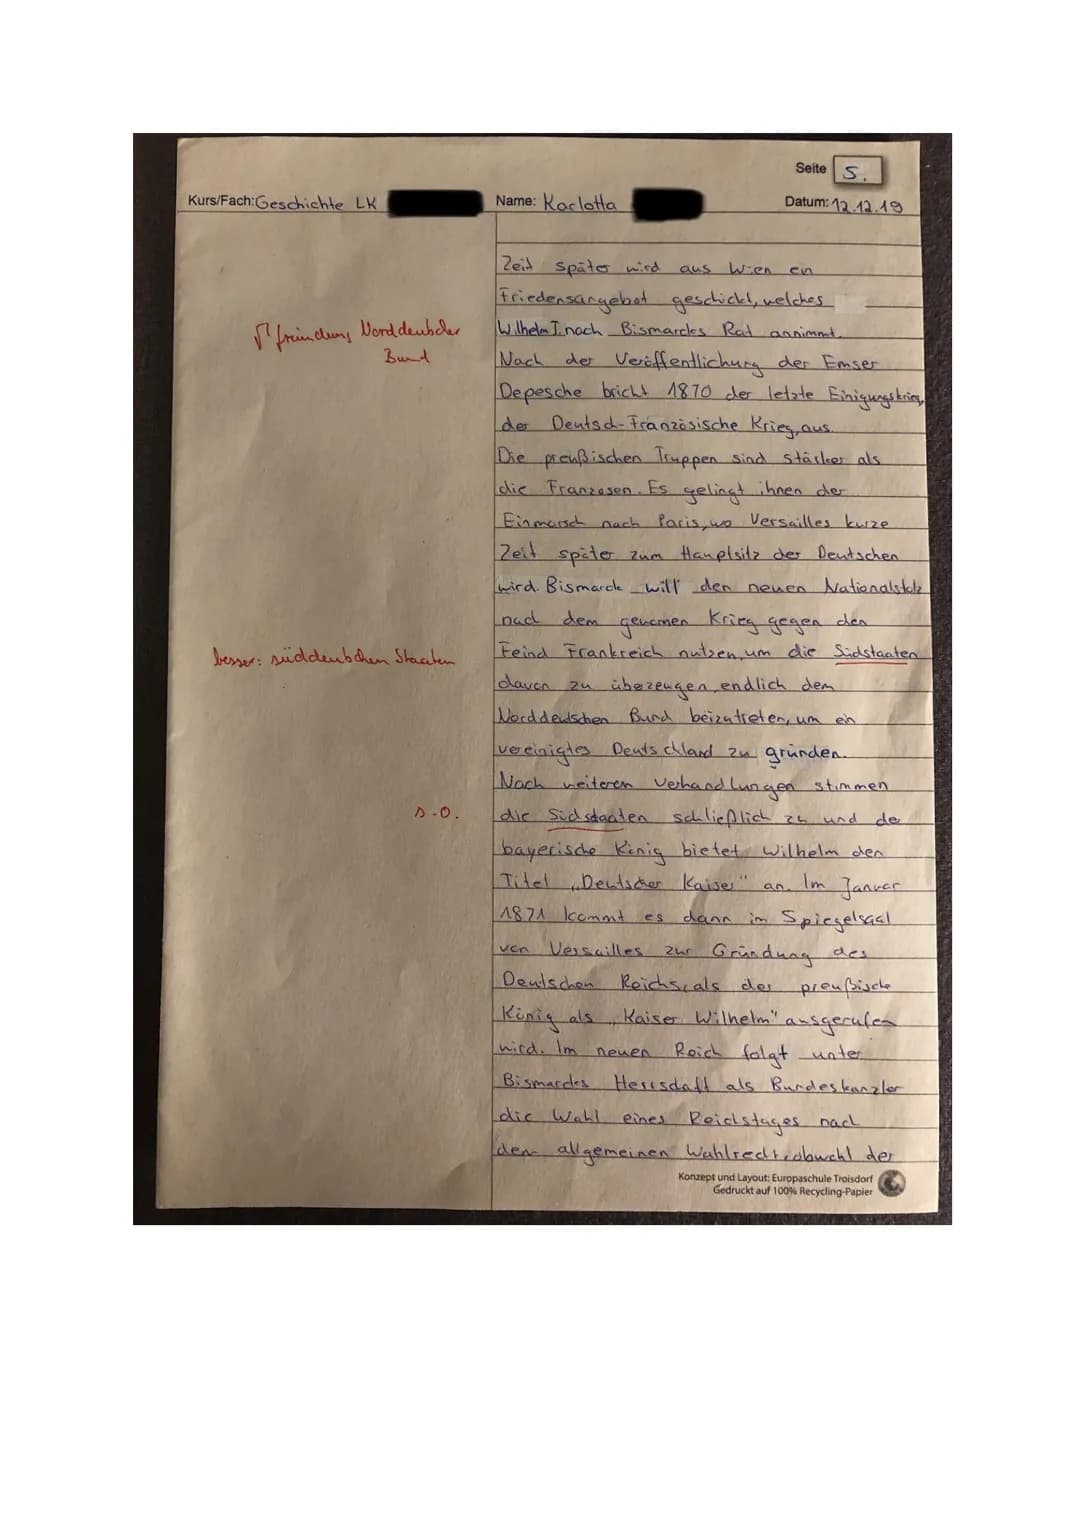 Seite 5.
Kurs/Fach: Geschichte LK Name: Karlotta Datum: 12.12.19
Zeit später wird aus Wien ein
Friedensangebot geschickt, welches
Wilhelm I. nach Bismarcks Rat annimmt.
Gründung Norddeutscher
Bund
Nach der Veröffentlichung der Emser
Depesche bricht 1870 der letzte Einigungskrieg,
der Deutsch-Französische Krieg, aus.
Die preußischen Truppen sind stärker als
die Franzosen. Es gelingt ihnen der
Einmarsch nach Paris, wo Versailles kurze
Zeit später zum Hauptsitz der Deutschen
wird. Bismarck will den neuen Nationalstolz
nach dem Krieg gegen den
besser: süddeutschen Staaten
Feind Frankreich nutzen, um die Südstaaten
davon zu überzeugen, endlich dem
Norddeutschen Bund beizutreten, um ein
vereinigtes Deutschland zu gründen.
Nach weiteren Verhandlungen stimmen
s.o.
die Südstaaten schließlich zu und de
bayerische König bietet Wilhelm den
Titel „Deutscher Kaiser" an. Im Januar
1871 kommt es dann im Spiegelsaal
von Versailles zur Gründung des
Deutschen Reichs, als der preußische
König als „Kaiser Wilhelm" ausgerufen
wird. Im neuen Reich folgt unter
Bismarcks Herrschaft als Bundeskanzler
die Wahl eines Reichstages nach
dem allgemeinen Wahlrecht, obwohl der
Konzept und Layout: Europaschule Troisdorf
Gedruckt auf 100% Recycling-Papier